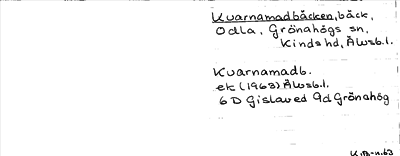 Kvarnamadbäcken, bäck,
Odla, Grönahögs sn,
Kinds hd, Älvsb.l.
Kvarnamadb.
ek (1963) Älvsb.l.
6D Gislaved 9d Grönahög